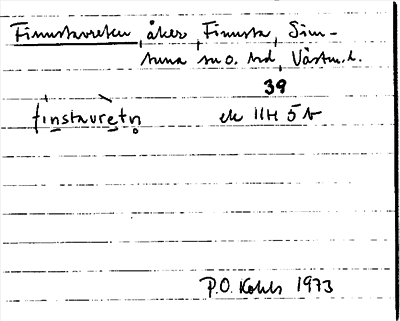 Finnstavreten, åker, Finnsta, Sim-
tuna sn o. hd, Västm. l.
39
finstavretn̥ ek 11H 5b
P.O. Kohls 1973